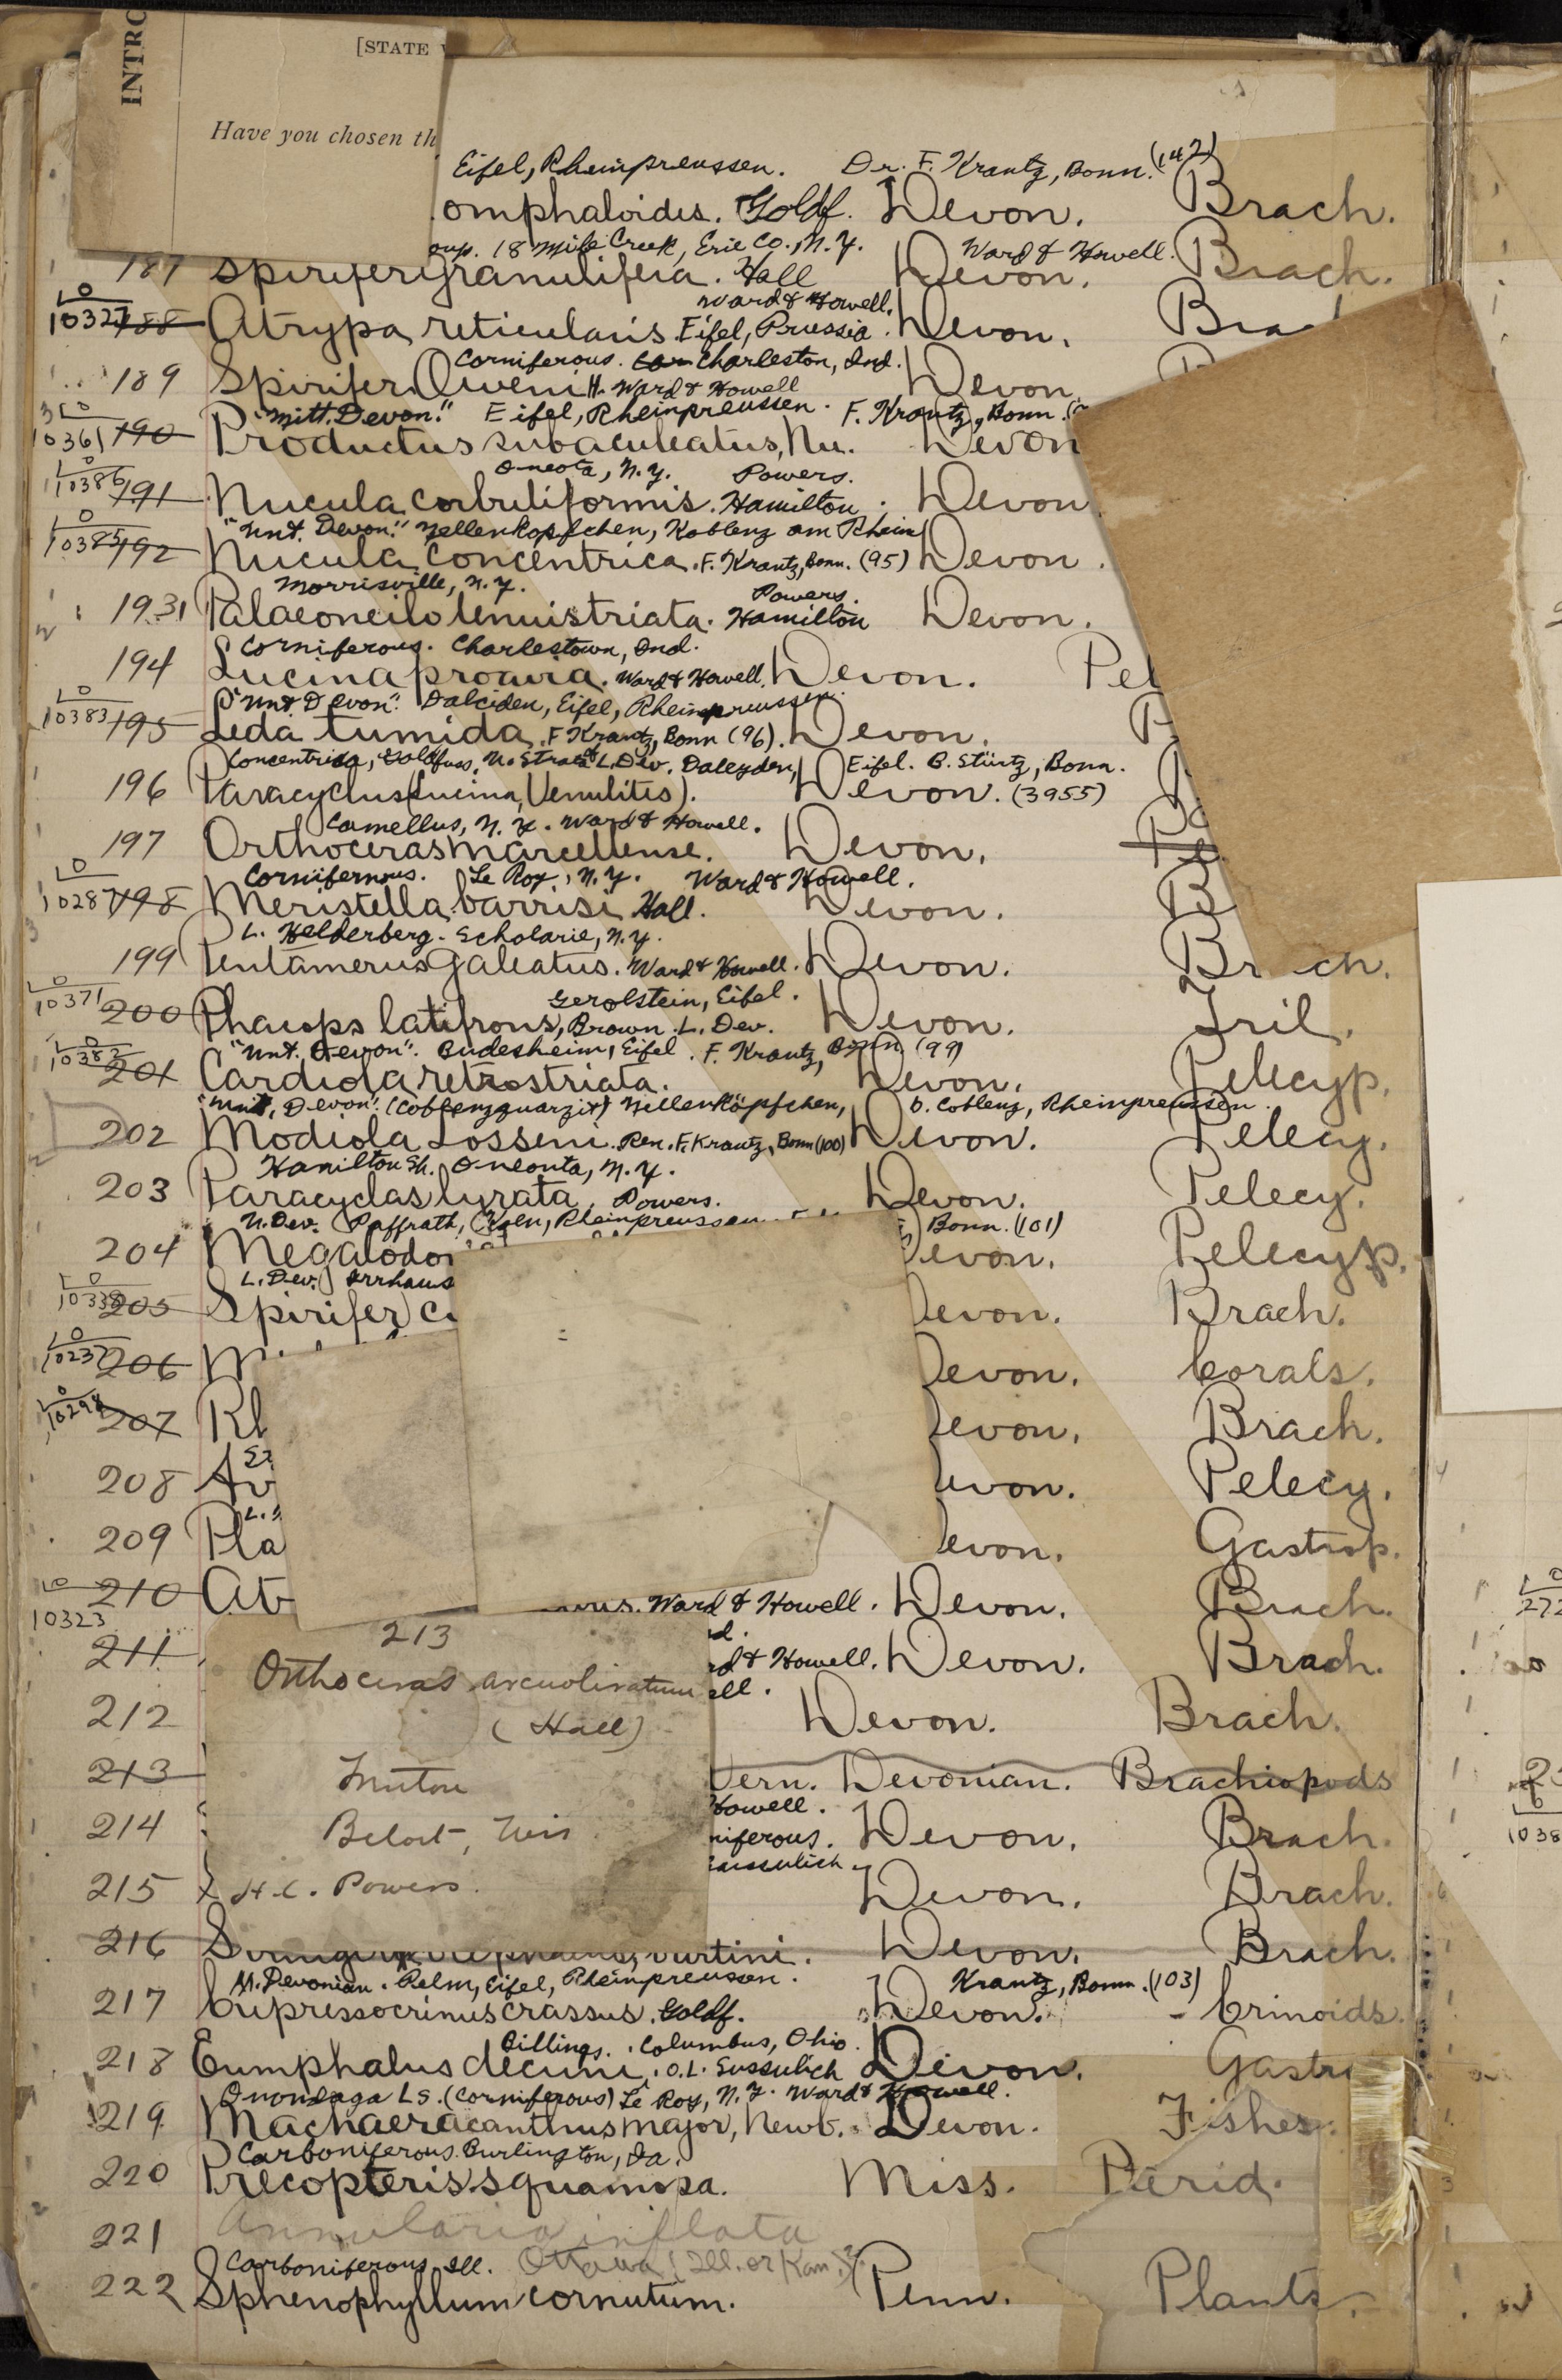 INTRO
[STATE
Have you chosen th
Eifel, Rheinpreussen. Dr. F. Krantz, Bonn. (142)
omphaloides. Goldf. Devon. Brach.
oup. 18 Mile Creek, Erie Co., N.Y. Ward & Howell.
187 Spirifer granulifera. Hall Devon. Brach.
Ward & Howell.
10327 188 Atrypa reticularis. Eifel, Prussia. Devon. Bra
Corniferous. Charleston, Ind.
189 Spirifer Oweni H. Ward & Howell Devon
"Mitt. Devon." Eifel, Rheinpreussen. F. Krantz, Bonn.
10361 190 Productus subaculeatus, Mu. Devon
Oneota, N.Y. Powers.
10386 191 Nucula corbuliformis. Hamilton. Devon
"Unt. Devon." Zellenkopfchen, Koblenz am Rhein
10385 192 Nucula concentrica. F. Krantz, Bonn. (95) Devon.
Morrisville, N.Y. Powers.
193 Palaeoneilo tenuistriata. Hamilton Devon.
Corniferous. Charlestown, Ind.
194 Lucina proavia. Ward & Howell. Devon. Pel
"Unt. Devon". Dalciden, Eifel, Rheinpreussen.
10383 195 Leda tumida. F Krantz, Bonn (96). Devon. P
Concentrica, Goldfuss. U. Strata L. Dev. Daleyden, Eifel. B. Stürtz, Bonn.
196 Paracyclus (Lucina, Venulites). Devon. (3955)
Camellus, N.Y. Ward & Howell.
197 Orthoceras marcellense. Devon.
Corniferous. Le Roy, N.Y. Ward & Howell.
10287 198 Meristella barrisi Hall. Devon. B
L. Helderberg. Scholarie, N.Y.
199 Pentamerus galeatus. Ward & Howell. Devon. Br ch.
Gerolstein, Eifel.
10371 200 Phacops latifrons, Brown. L. Dev. Devon. Tril.
"Unt. Devon". Budesheim, Eifel. F. Krantz, Bonn (99)
10382 201 Cardiola retrostriata. Devon. Pelecyp.
"Unt. Devon". (Coblenzquarzit) Zellenköpfchen, b. Coblenz, Rheinpreussen.
202 Modiola Losseni. Ren. F. Krantz, Bonn (100) Devon. Pelecy.
Hamilton Sh. Oneonta, N.Y.
203 Paracyclas lyrata. Powers. Devon. Pelecy.
U. Dev. Paffrath, Koln, Rheinpreussen. Bonn. (101)
204 Megalodon evon. Pelecyp.
L. Dev. Arrhaus
10338 205 Spirifer c evon. Brach.
10237 206 M evon. Corals.
10298 207 Rh evon. Brach.
208 Av evon. Pelecy.
209 Pla evon. Gastrop.
210 At Ward & Howell. Devon. Brach.
10323
211 rd & Howell. Devon. Brach.
ell.
212 Devon. Brach.
213 Vern. Devonian. Brachiopods
Howell.
214 niferous. Devon. Brach.
215 Devon. Brach.
213
Orthoceras arcuoliratum
(Hall)
Trenton
Beloit, Wis
H.C. Powers.
216 burtini. Devon. Brach.
M. Devonian. Pelm, Eifel, Rheinpreussen. Krantz, Bonn. (103)
217 Cupressocrinus crassus. Goldf. Devon. - Crinoids.
Billings. Columbus, Ohio.
218 Eumphalus decuni. O.L. Sussulich Devon. Gastr
Onondaga Ls. (Corniferous) Le Roy, N.Y. Ward & Howell.
219 Machaeracanthus major, Newb. Devon. Fishes.
Carboniferous. Burlington, Ia.
220 Precopteris squamosa. Miss. Pterid.
221 Annularia inflata
Carboniferous. Ill. Ottawa (Ill. or Kan.)?
222 Sphenophyllum cornutum. Penn. Plants.